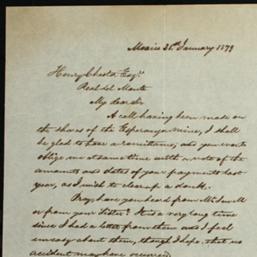 Mexico 28th January 1879
Henry Chester Esqr
Real del Monte
My dear Sir
A call having been made on
the shares of the Esperanza mine, I shall
be glad to have a remittance, and you
oblige me at same time with a note of the
amounts and dates of your payments last
year, as I wish to clear up a doubt.
Pray have you heard from
or from your Sister? It is a very long time
since I had a letter from them and I feel
uneasy about them, though I hope that no
accident may have occurred